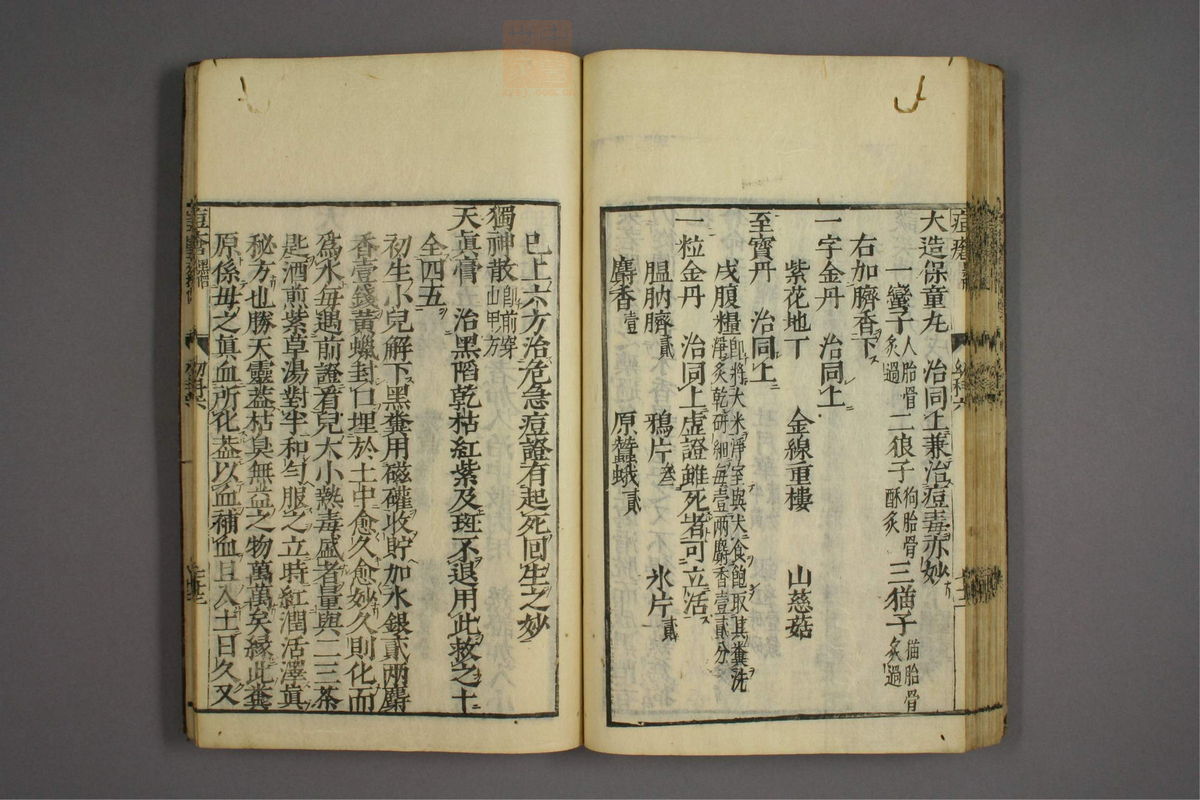 大造保童丸 治同上兼治痘毒亦妙
一蠻子人胎骨炙過二狼子狗胎骨酥炙三猫子猫胎骨炙過
右加臍香下
一字金丹 治同上
紫花地丁 金線重樓 山慈菇
至寶丹 治同上
戌腹糧即將大米淨室與犬食飽取其糞洗淨炙乾研細每壹兩麝香壹貳分
一粒金丹 治同上虛證雖死者可立活
膃肭臍貳 鴉片叁 氷片貳
麝香壹 原蠶蛾貳
已上六方治危急痘證有起死回生之妙
獨神散即前穿山甲方
天真膏 治黑陷乾枯紅紫及斑不退用此救之十
全四五
初生小兒解下黑糞用磁礶收貯加水銀貳兩麝
香壹錢黃蠟封口埋於土中愈久愈妙久則化而
為水每遇前證看兒大小熱毒盛者量與二三茶
匙酒煎紫草湯對半和勻服之立時紅潤活澤真
秘方也勝天靈蓋枯臭無益之物萬萬矣縁此糞
原係母之真血所化蓋以血補血且入土日久又